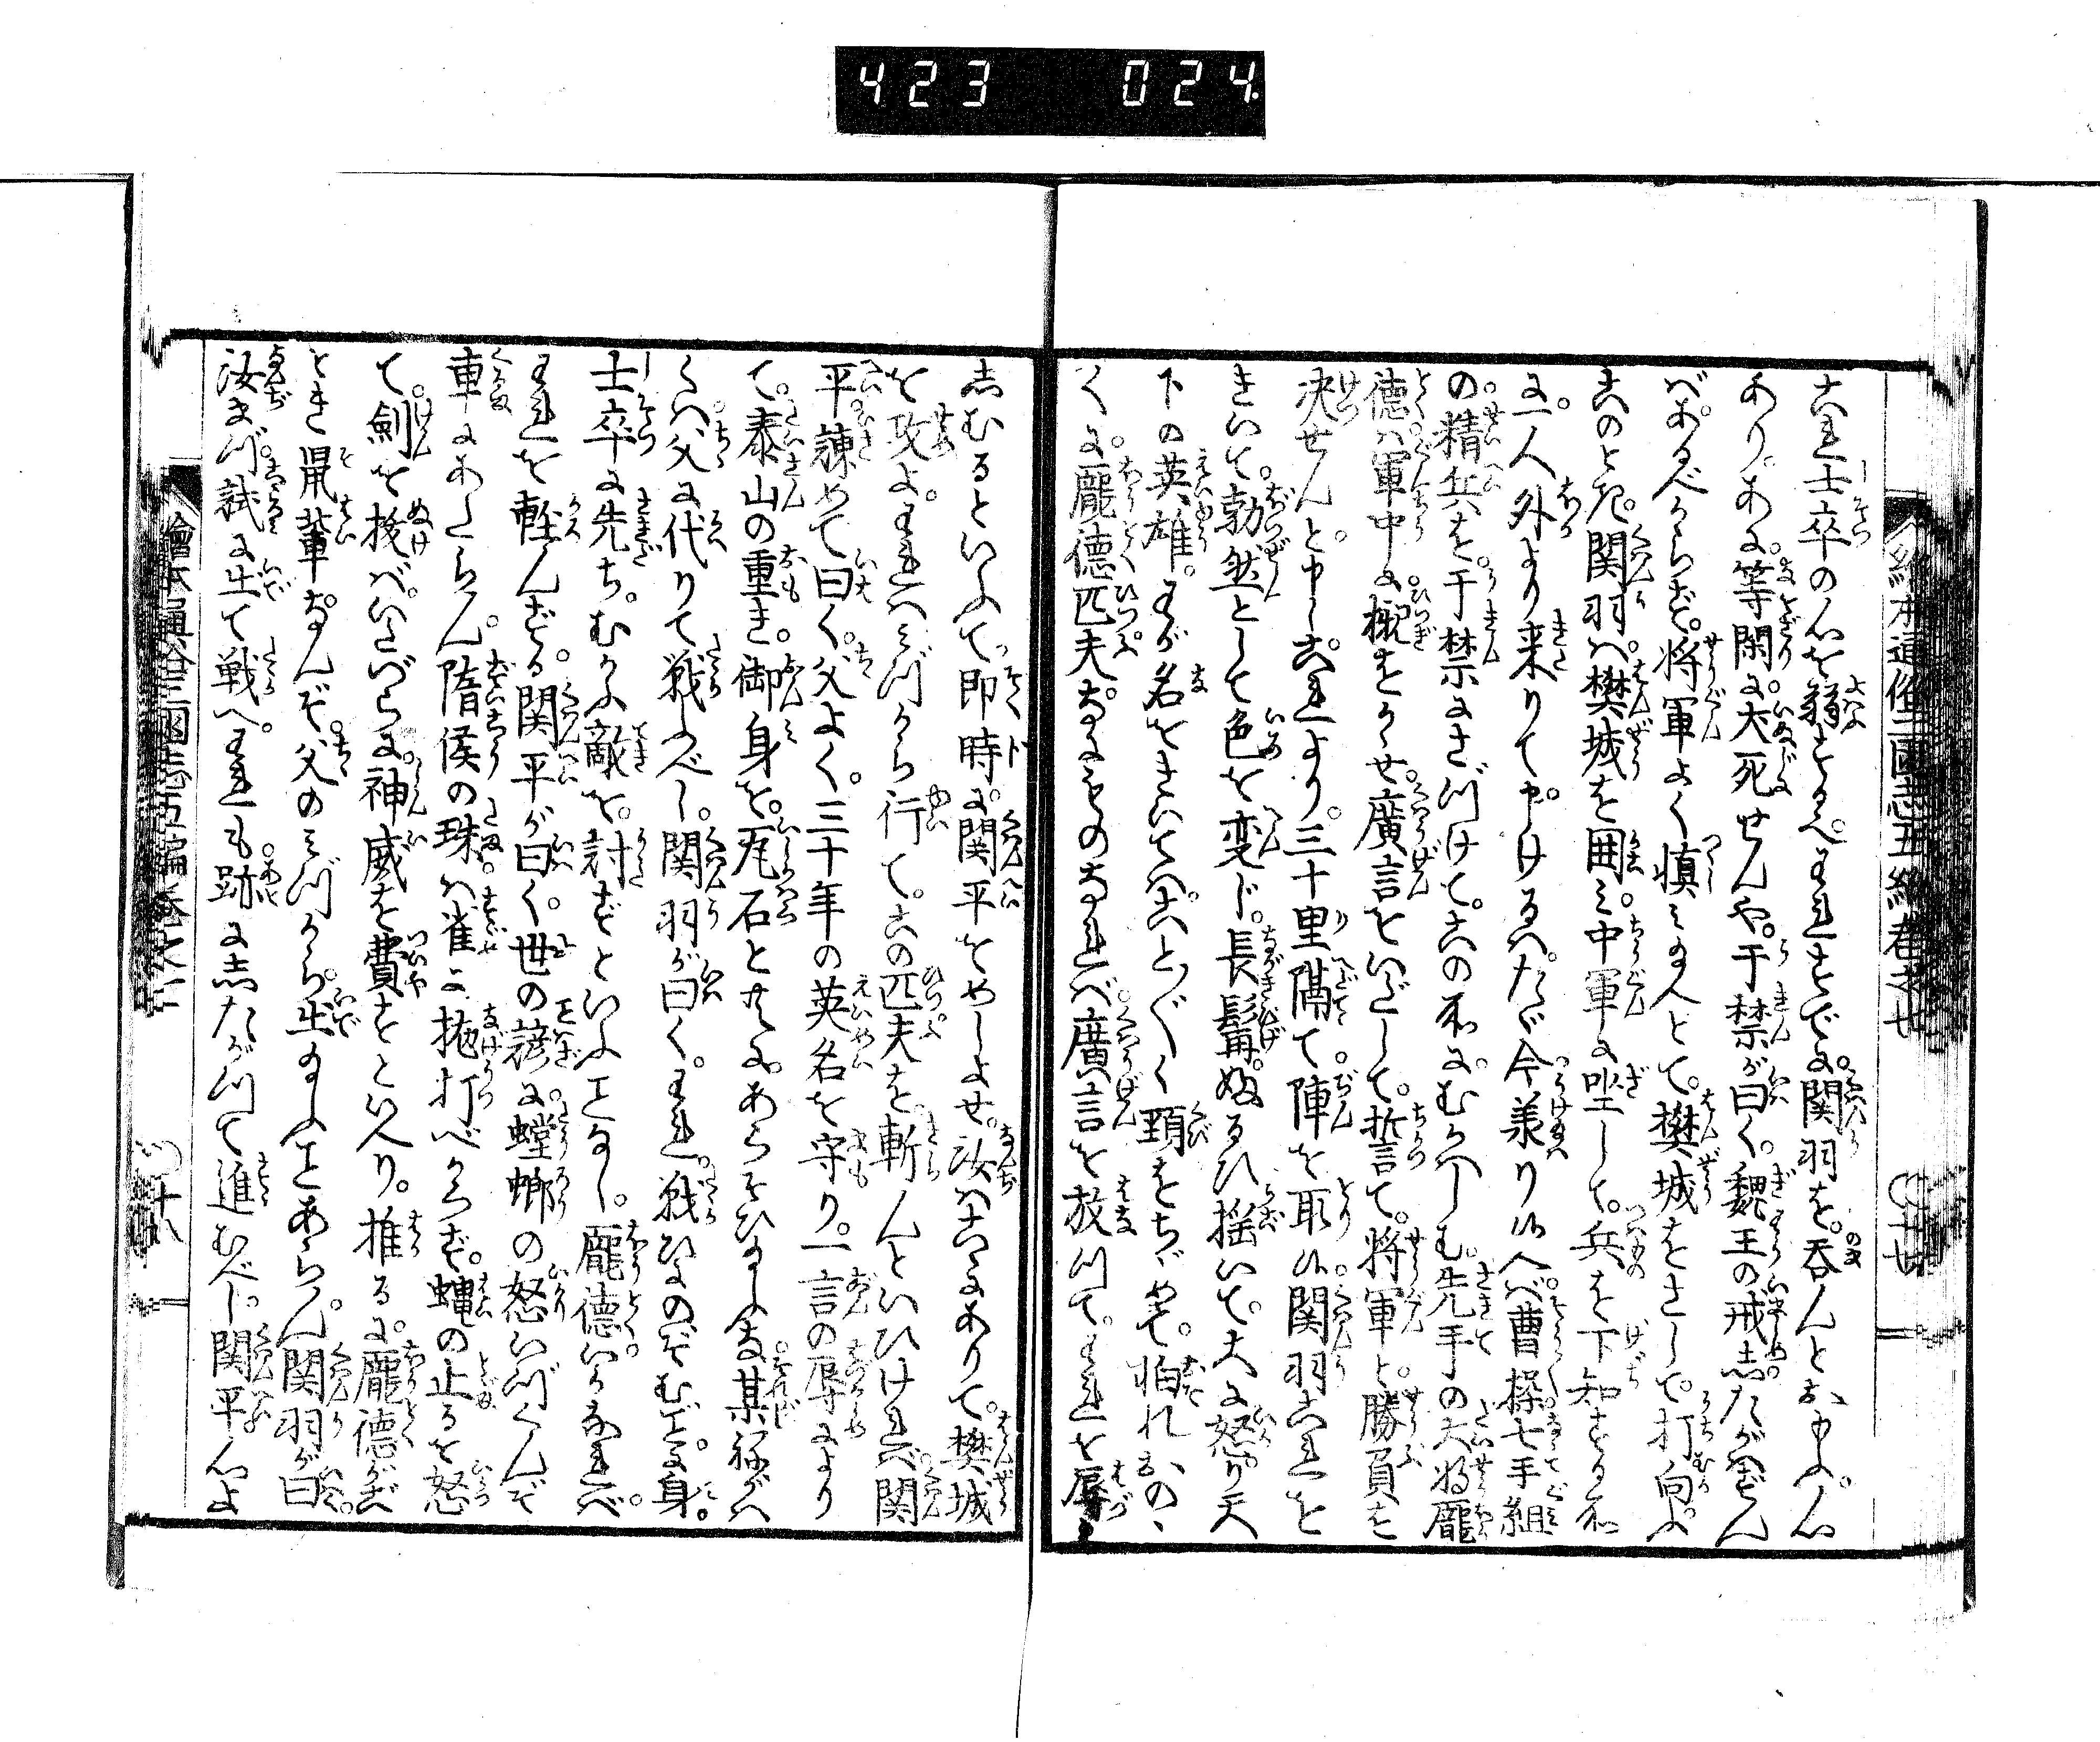 423 024.
これ士卒の心を弱とるべ。われすでに。関羽を。呑んとおもふ。心
あり。あに。等閑に犬死せんや。于禁が曰く。魏王の戒したがはずん
ばあるべからず。将軍よく慎み玉へとて。樊城をさして。打向ふ
このとき。関羽は。樊城を囲み。中軍に坐して。兵を下知する所
に。一人外より来りて。申けるは。たゞ今羕り候へば。曹操七手組
の。精兵を。于禁にさづけて。この所にむかはしむ。先手の大将龐
徳は。軍中に。櫬をかゝせ。廣言をいだして。誓て。将軍と。勝負を
決せんと。申し。これより。三十里隔て。陣を取候。関羽これを
きいて。勃然として色を変じ。長髯。ぬるひ揺いて。大に怒り天
下の英雄。わが名をきいては。こと〴〵く頸をちゞめて。怕れおのゝ
く に。龐徳匹夫。なにものなれば。廣言を放つて。われを辱
しむるといふて即時。に関平をめしよせ。汝はこゝにありて。樊城
を攻よ。われみづから行て。この匹夫を。斬んといひければ。関
平。諌めて曰く。父よく。三十年の英名を守り。一言の辱により
て。泰山の重き。御身を。瓦石とともに。あらそひ玉ふな某ねがは
くは。父に代りて戦ふべし。関羽が曰く。われ。戦ひにのぞむごとに。身。
士卒に先ち。むかふ敵を。討ずといふことなし。龐徳。いかなれば。
われを軽んずる。関平が曰く。世の諺に。螳螂の怒いづくんぞ
車にあたらん。隋侯の珠は。雀に抛打べからず。蠅の止るを怒
て。剣を抜ば。いたづらに。神威を費すといへり。推るに。龐徳がごと
き鼠輩なんぞ。父のみづから。出玉ふことあらん。関羽が曰。
汝まづ。試に出て戦へ。われも。跡にしたがつて進むべし。関平心よ
繪本通俗三國志五編巻之二
十八